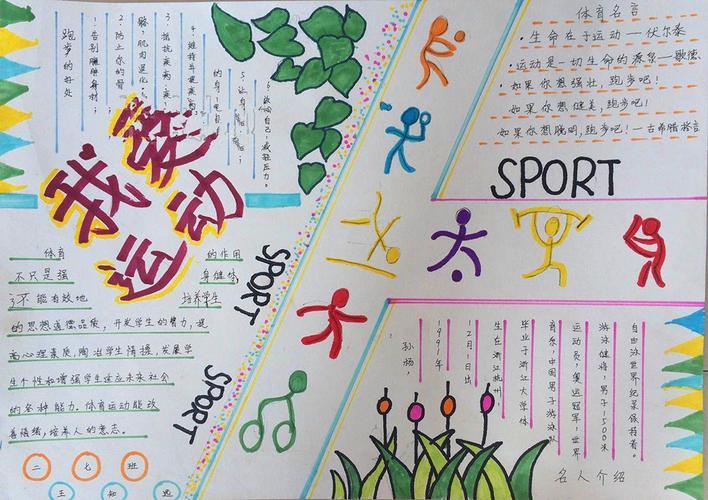 跑步的好处
1. 告别臃肿身材；
2. 防止你的骨
骼，肌肉退化；
3. 抵抗疾病；
4. 维持并提高
我爱
运动
体育名言
·生命在于运动——伏尔泰
·运动是一切生命的源泉——歌德
·如果你想强壮，跑步吧！
如果你想健美，跑步吧！
如果你想聪明，跑步吧！——古希腊格言
SPORT
SPORT
SPORT
体育 的作用
不只是强 身健体，
不能有效地 培养学生
的思想道德品质，开发学生的智力，提
高心理素质，陶冶学生情操，发展学
生个性和增强学生适应未来社会
的各种能力。体育运动能改
善情绪，培养人的意志。
二 七 班
王 知 远
孙杨，
1991年
12月1日出
生在浙江杭州，
毕业于浙江大学体
育系，中国男子游泳队
运动员，奥运冠军，世界
游泳健将，男子1500米
自由泳世界纪录保持着。
名人介绍